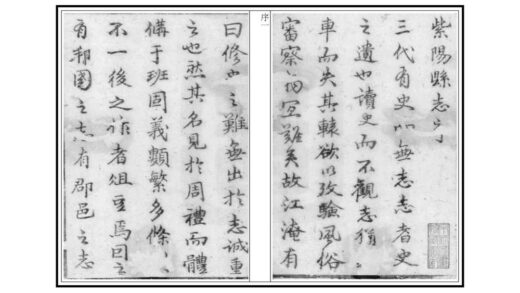 紫陽縣志序
三代有史而無志志者史
之遺也讀史而不觀志猶
車而失其轅欲以攷驗風俗
審察物宜難矣故江淹有
序一
曰修史之難無出於志誠重
之也然其名見於周禮而體
備于班固義頗繁多條
不一後之作者俎豆焉因之
有邦國之志有郡邑之志